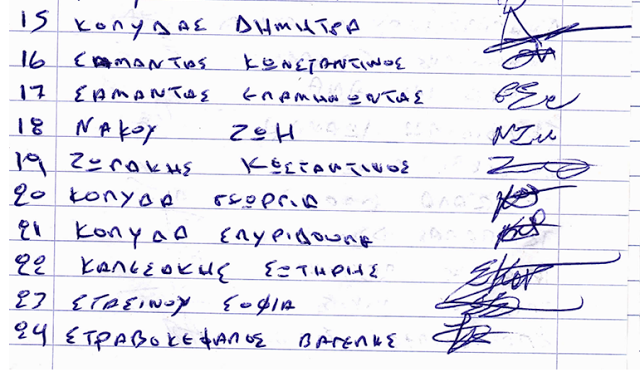 15 ΚΟΛΥΔΑΣ ΔΗΜΗΤΡΑ
16 ΣΑΜΑΝΤΑΣ ΚΩΝΣΤΑΝΤΙΝΟΣ
17 ΣΑΜΑΝΤΑΣ ΕΠΑΜΗΝΩΝΤΑΣ
18 ΝΑΚΟΥ ΖΩΗ
19 ΚΩΣΤΑΝΤΙΝΟΣ
20 ΚΟΛΥΔΑ ΓΕΩΡΓΙΑ
21 ΚΟΛΥΔΑ ΣΠΥΡΙΔΟΥΛΑ
22 ΣΩΤΗΡΗΣ
23 ΣΤΑΣΙΝΟΥ ΣΟΦΙΑ
24 ΣΤΡΑΒΟΚΕΦΑΛΟΣ ΒΑΓΕΛΗΣ